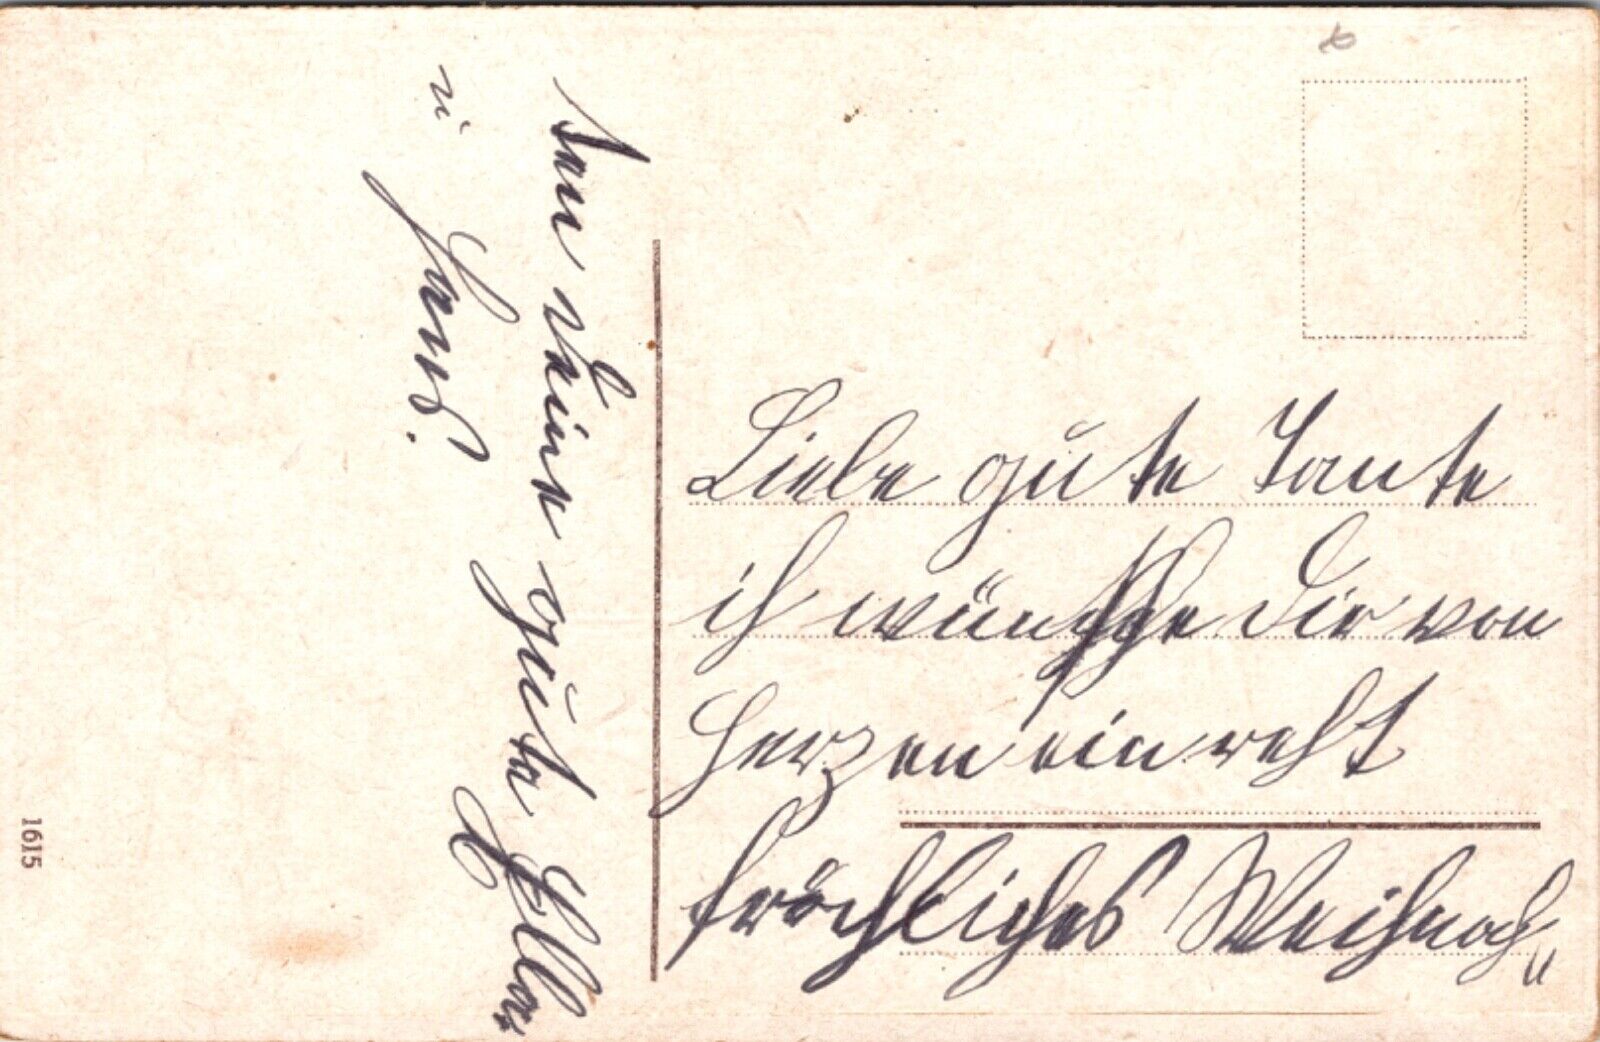 Liebe gute Tante
ich wünsche Dir von
Herzen ein recht
fröhliches Weihnach„
deine gute Ella
u
Hans.
1615